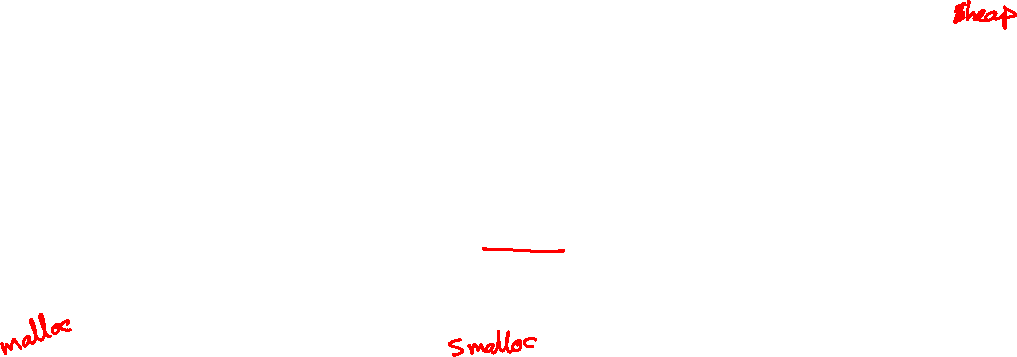 heap
malloc
smalloc